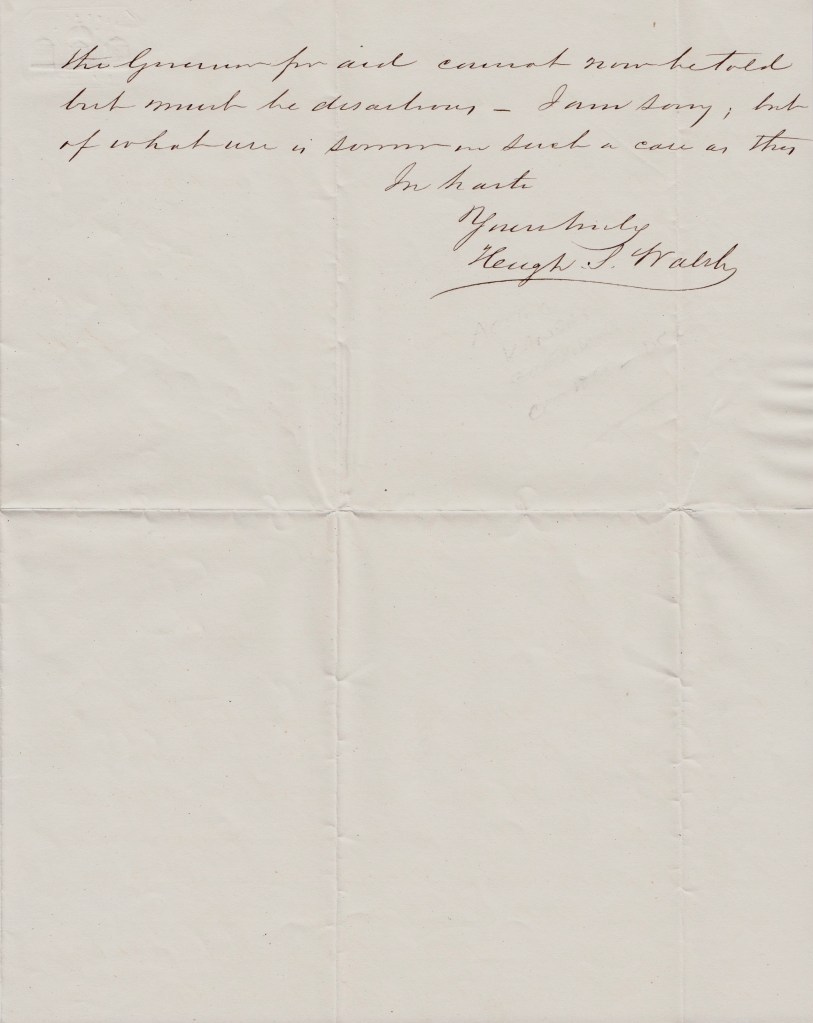 the Governor for aid cannot now be told
but must be disastrous – I am sorry; but
of what use is sorrow in such a case as this
In haste
Yours truly
Hugh S. Walsh